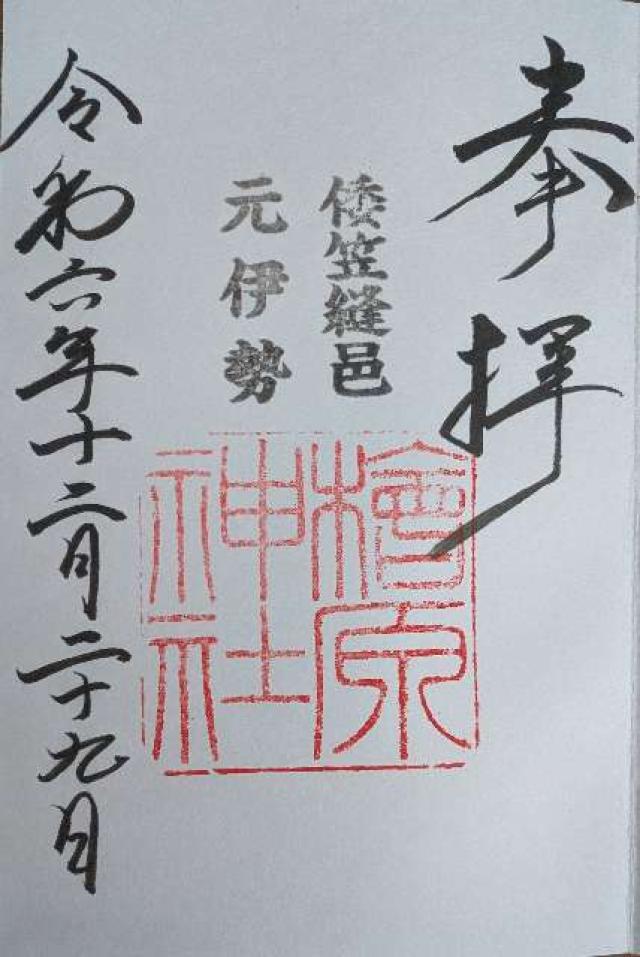 奉拝
倭笠縫邑
元伊勢
檜原
神社
令和六年十二月二十九日